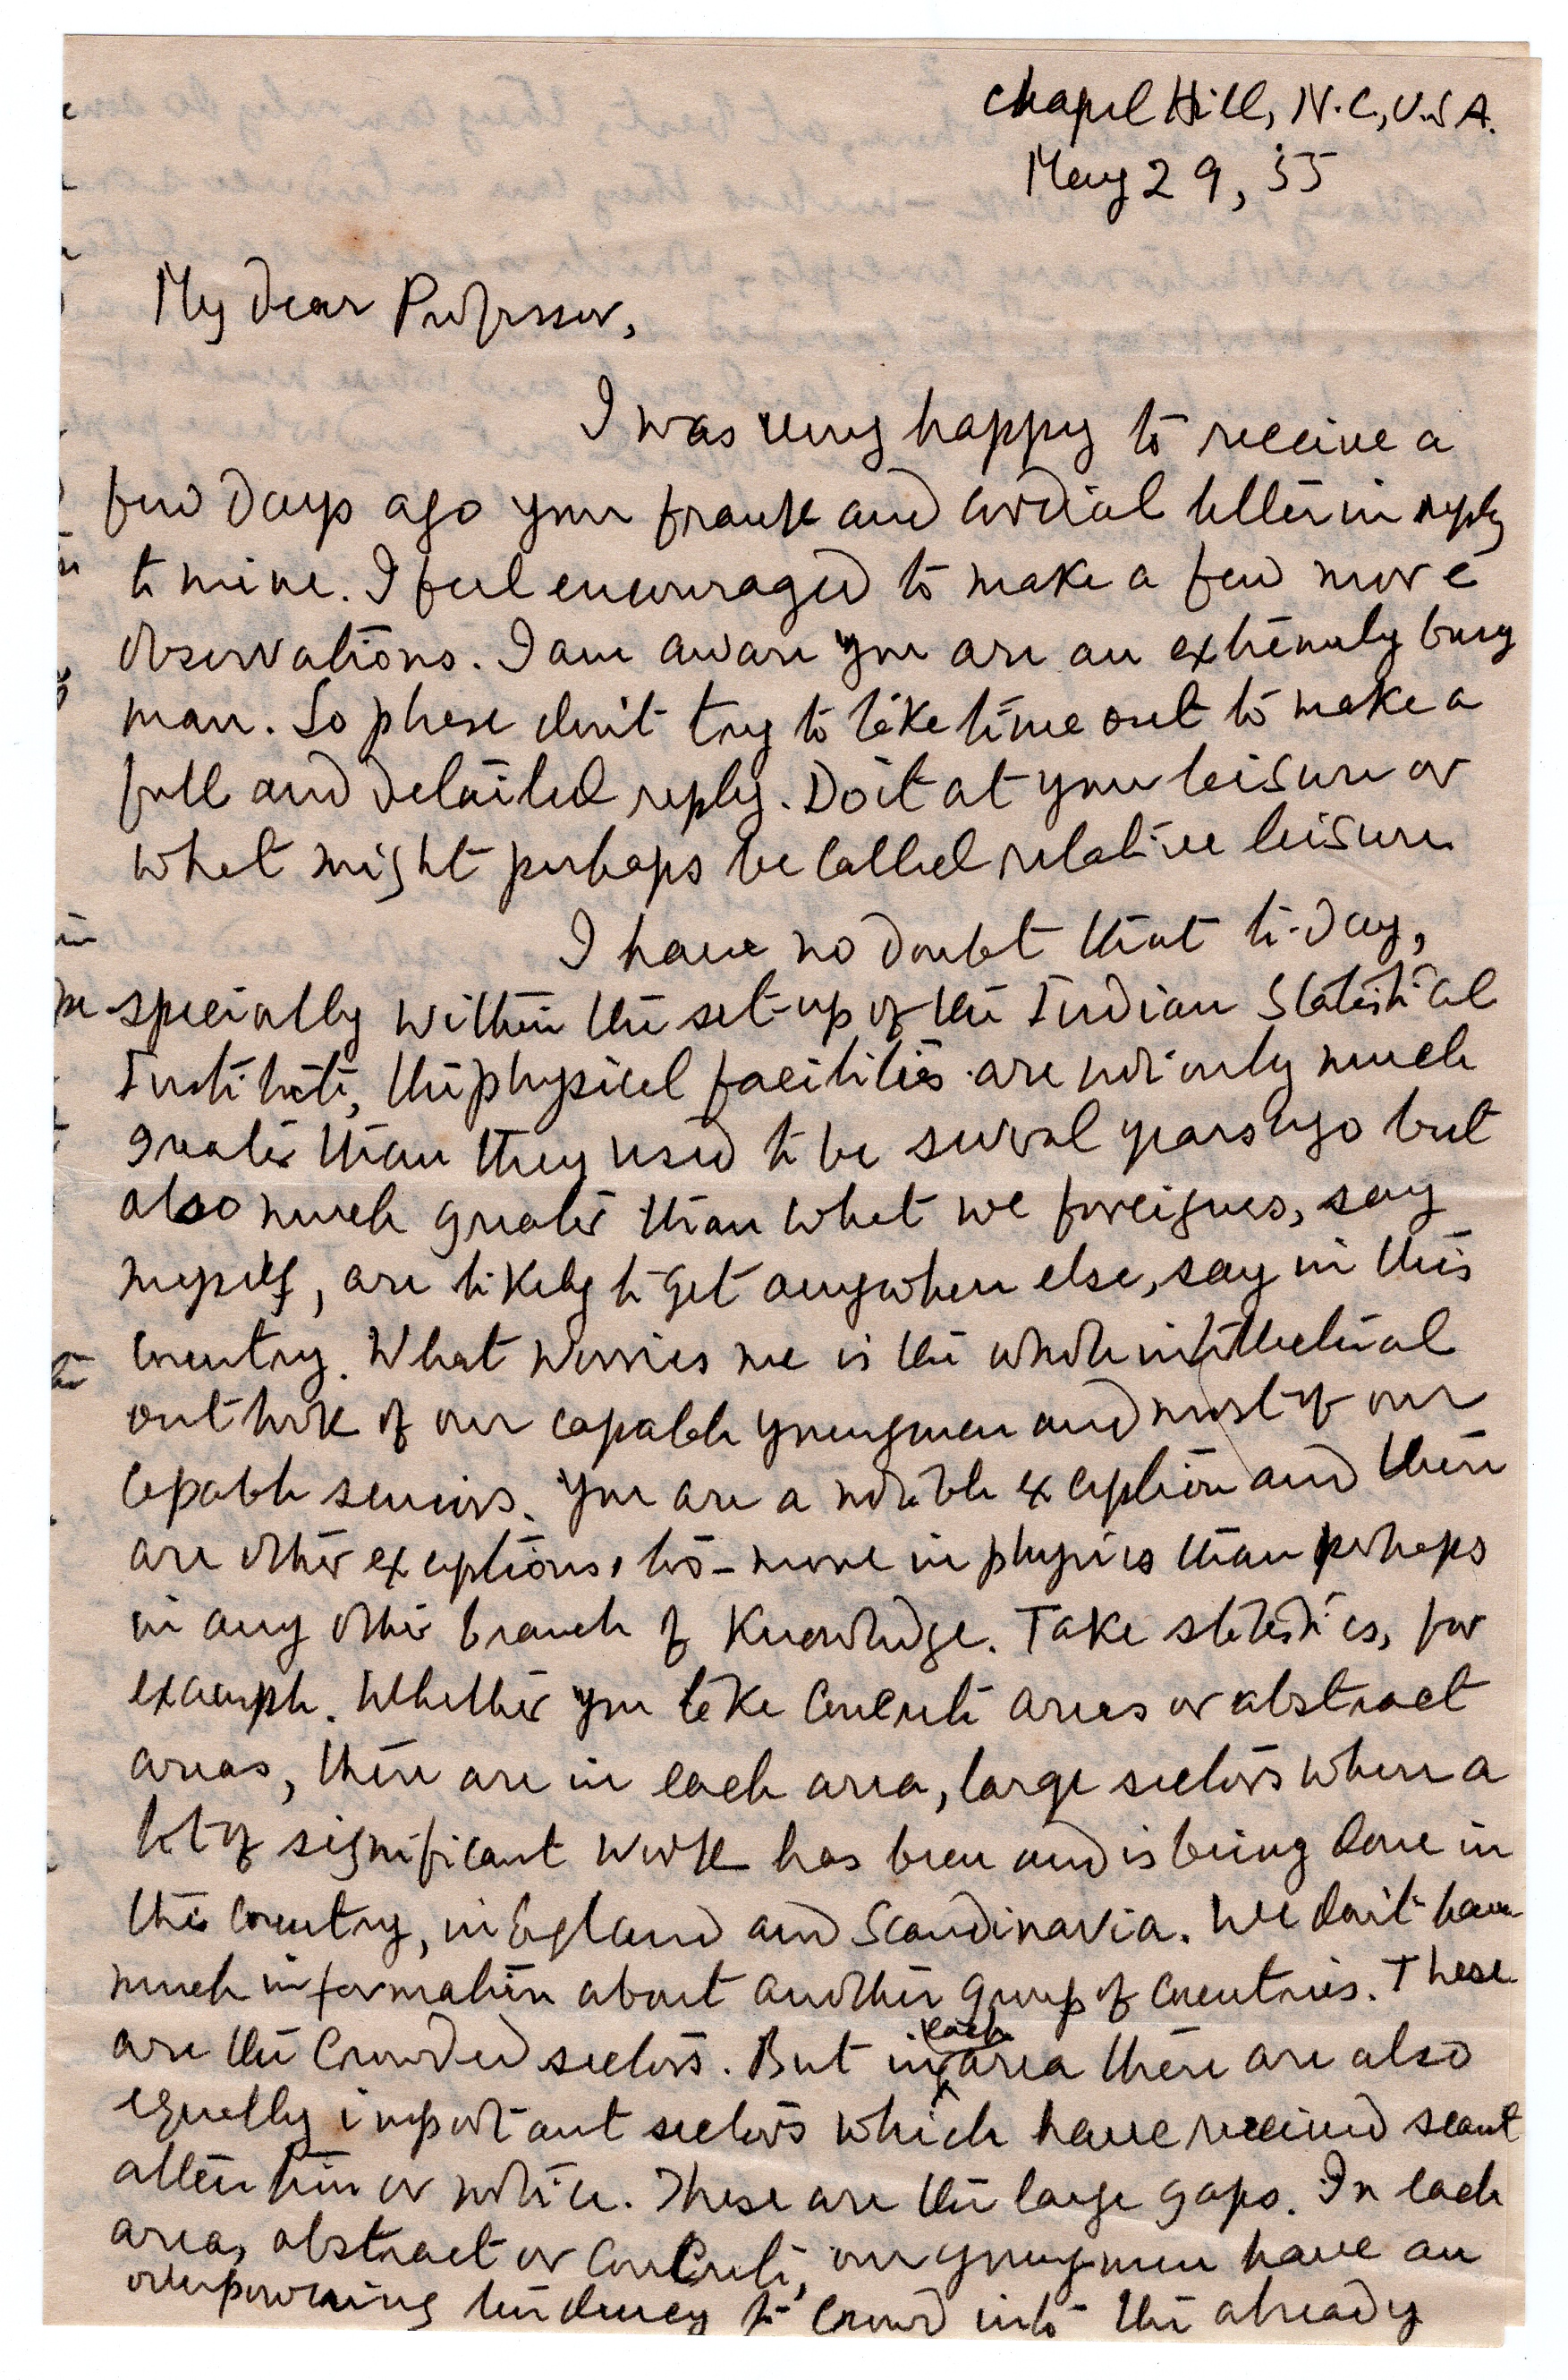 Chapel Hill, N.C., U.S.A.
May 29, 55
My dear Professor,
I was very happy to receive a
few days ago your frank and cordial letter in reply
to mine. I feel encouraged to make a few more
observations. I am aware you are an extremely busy
man. So please don't try to take time out to make a
full and detailed reply. Do it at your leisure or
what might perhaps be called relative leisure.
I have no doubt that to-day,
specially within the set-up of the Indian Statistical
Institute, the physical facilities are not only much
greater than they used to be several years ago but
also much greater than what we foreigners, say
myself, are likely to get anywhere else, say in this
country. What worries me is the whole intellectual
outlook of our capable youngmen and most of our
capable seniors. You are a notable exception and there
are other exceptions, too - more in physics than perhaps
in any other branch of knowledge. Take statistics, for
example. Whether you take concrete areas or abstract
areas, there are in each area, large sectors where a
lot of significant work has been and is being done in
this country, in England and Scandinavia. We don't have
much information about another group of countries. These
are the crowded sectors. But in each area there are also
equally important sectors which have received scant
attention or notice. These are the large gaps. In each
area, abstract or concrete, our youngmen have an
overpowering tendency to crowd into the already